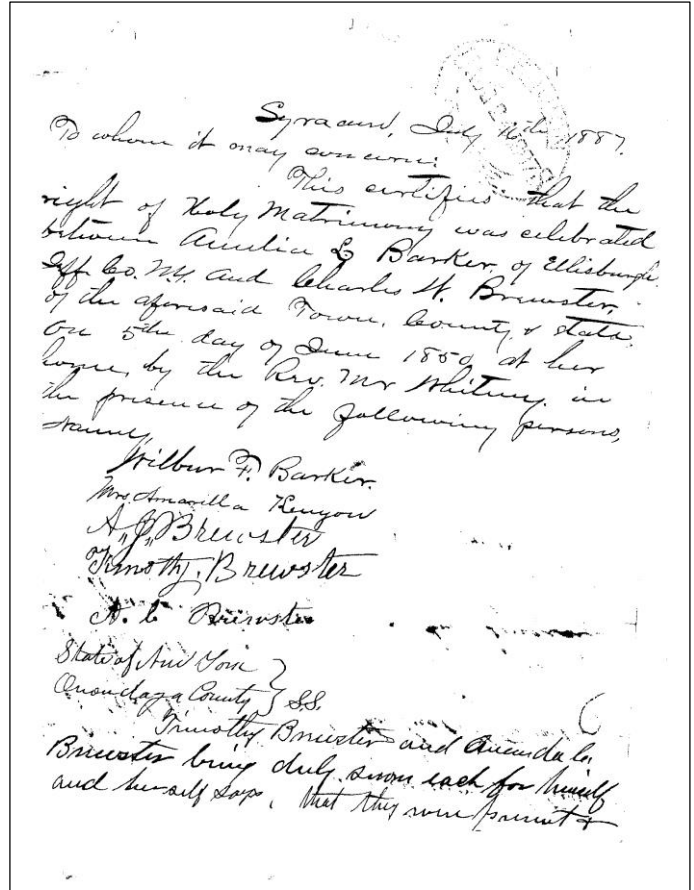 Syracuse, July 16th 1887.
To whom it may concern:
This certifies that the
right of Holy Matrimony was celebrated
between Amelia Barker, of Ellisburgh
Jeff Co. N.Y. and Charles W. Brewster,
of the aforesaid Town, County & State.
On 5th day of June 1850, at her
home, by the Rev. Mr Whitney, in
the presence of the following persons,
Wilbur F. Barker.
Mrs. Amarilla Kenyon
A. J. Brewster
Timothy. Brewster
A. C Brewster
State of New York }
Onondaga County } S.S.
Timothy Brewster and Amanda C.
Brewster being duly sworn each for himself
and herself says, that they were present &